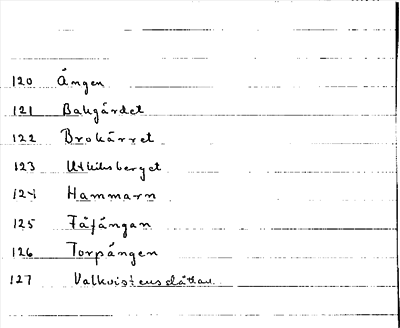 120 Ängen
121 Bakgärdet
122 Brokärret
123 Utkiksberget
124 Hammarn
125 Fåfängan
126 Torpängen
127 Valkvistensslåttan